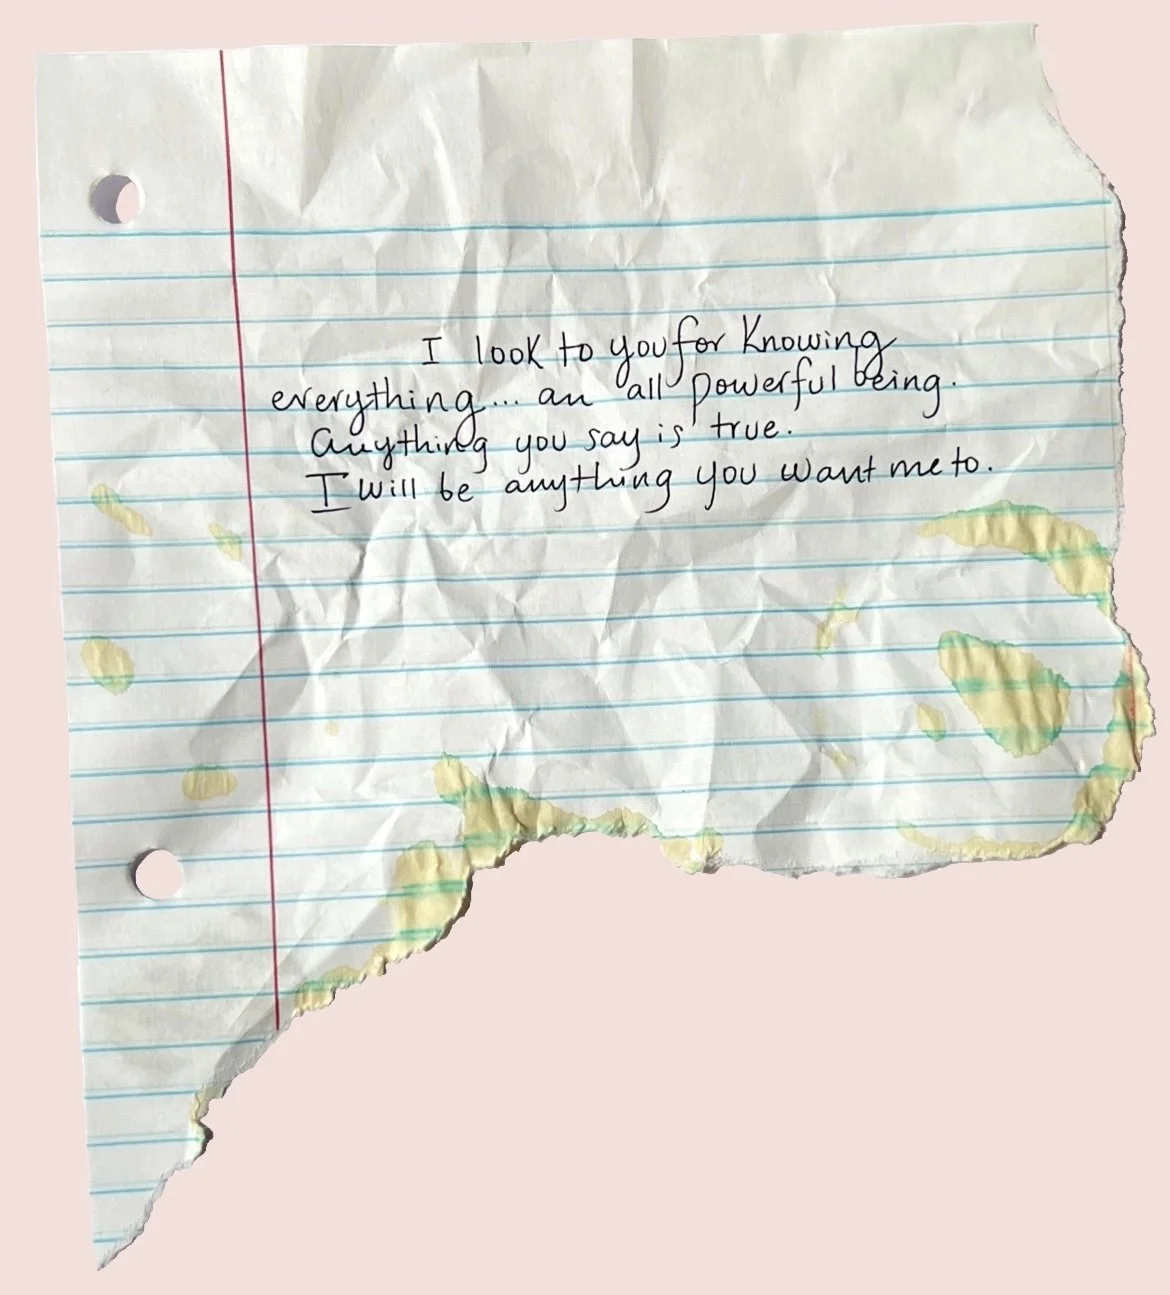 I look to you for Knowing
everything... an all powerful being.
Anything you say is true.
I will be anything you want me to.